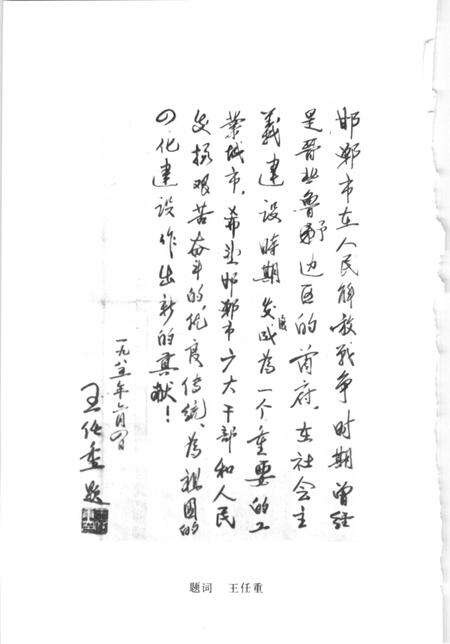 邯郸市在人民解放战争时期曾经
是晋冀鲁豫边区的首府。在社会主
義建设時期发展成為一个重要的工
業城市。希望邯郸市广大干部和人民
发扬艰苦奋斗的优良传统、為祖国的
四化建设作出新的贡献！
一九八五年六月四日
王任重题
题词 王任重